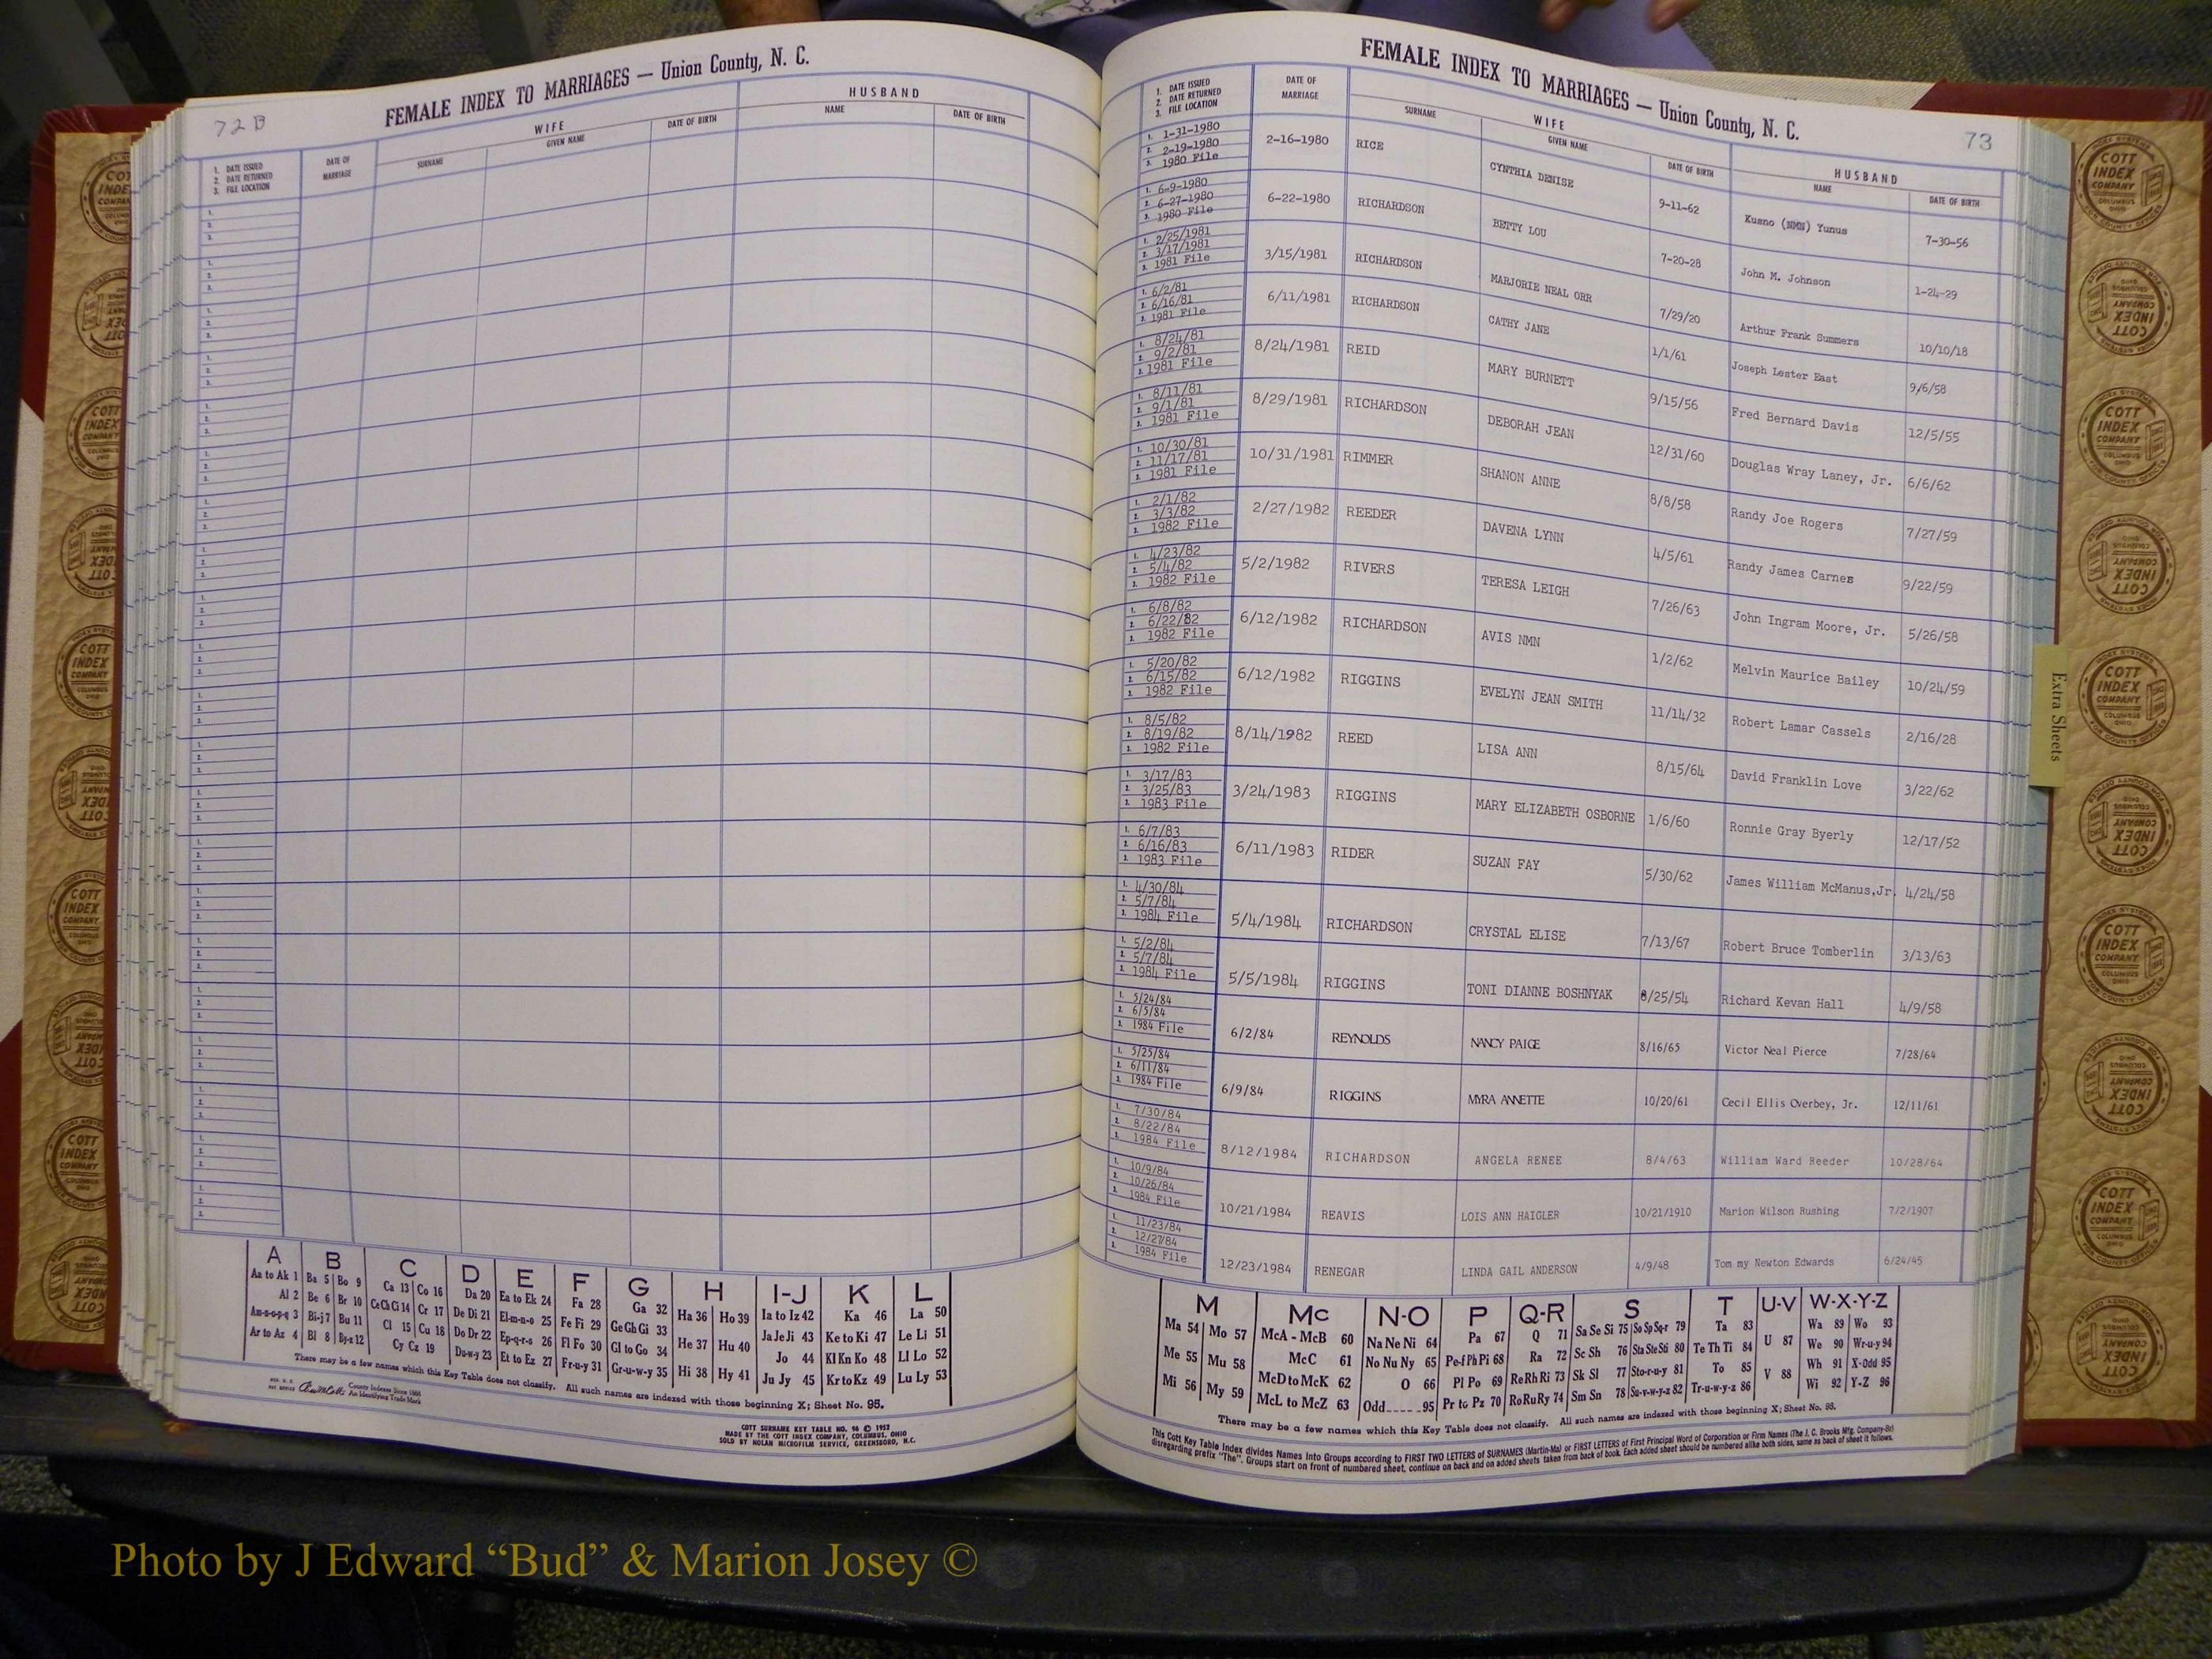 72B
FEMALE INDEX TO MARRIAGES — Union County, N. C.
1. DATE ISSUED
2. DATE RETURNED
3. FILE LOCATION
DATE OF MARRIAGE
WIFE
SURNAME GIVEN NAME DATE OF BIRTH
HUSBAND
NAME DATE OF BIRTH
A
Aa to Ak 1
Al 2
Am-n-o-p-q 3
Ar to Az 4
B
Ba 5 Bo 9
Be 6 Br 10
Bi-j 7 Bu 11
Bl 8 By-z 12
C
Ca 13 Co 16
Ce Ch Ci 14 Cr 17
Cl 15 Cu 18
Cy Cz 19
D
Da 20
De Di 21
Do Dr 22
Du-w-y 23
E
Ea to Ek 24
El-m-n-o 25
Ep-q-r-s 26
Et to Ez 27
F
Fa 28
Fe Fi 29
Fl Fo 30
Fr-u-y 31
G
Ga 32
Ge Gh Gi 33
Gl to Go 34
Gr-u-w-y 35
H
Ha 36 Ho 39
He 37 Hu 40
Hi 38 Hy 41
I-J
Ia to Iz 42
Ja Je Ji 43
Jo 44
Ju Jy 45
K
Ka 46
Ke to Ki 47
Kl Kn Ko 48
Kr to Kz 49
L
La 50
Le Li 51
Ll Lo 52
Lu Ly 53
There may be a few names which this Key Table does not classify. All such names are indexed with those beginning X; Sheet No. 95.
County Indexes Since 1888
An Identifying Trade Mark
COTT SURNAME KEY TABLE NO. 96 © 1952
MADE BY THE COTT INDEX COMPANY, COLUMBUS, OHIO
SOLD BY NOLAN MICROFILM SERVICE, GREENSBORO, N.C.
73
FEMALE INDEX TO MARRIAGES — Union County, N. C.
1. DATE ISSUED
2. DATE RETURNED
3. FILE LOCATION
DATE OF MARRIAGE
WIFE
SURNAME GIVEN NAME DATE OF BIRTH
HUSBAND
NAME DATE OF BIRTH
1. 1-31-1980
2. 2-19-1980
3. 1980 File
2-16-1980 RICE CYNTHIA DENISE 9-11-62 Kusno (NMN) Yunus 7-30-56
1. 6-9-1980
2. 6-27-1980
3. 1980 File
6-22-1980 RICHARDSON BETTY LOU 7-20-28 John M. Johnson 1-24-29
1. 2/25/1981
2. 3/17/1981
3. 1981 File
3/15/1981 RICHARDSON MARJORIE NEAL ORR 7/29/20 Arthur Frank Summers 10/10/18
1. 6/2/81
2. 6/16/81
3. 1981 File
6/11/1981 RICHARDSON CATHY JANE 1/1/61 Joseph Lester East 9/6/58
1. 8/24/81
2. 9/2/81
3. 1981 File
8/24/1981 REID MARY BURNETT 9/15/56 Fred Bernard Davis 12/5/55
1. 8/11/81
2. 9/1/81
3. 1981 File
8/29/1981 RICHARDSON DEBORAH JEAN 12/31/60 Douglas Wray Laney, Jr. 6/6/62
1. 10/30/81
2. 11/17/81
3. 1981 File
10/31/1981 RIMMER SHANON ANNE 8/8/58 Randy Joe Rogers 7/27/59
1. 2/1/82
2. 3/3/82
3. 1982 File
2/27/1982 REEDER DAVENA LYNN 4/5/61 Randy James Carnes 9/22/59
1. 4/23/82
2. 5/4/82
3. 1982 File
5/2/1982 RIVERS TERESA LEIGH 7/26/63 John Ingram Moore, Jr. 5/26/58
1. 6/8/82
2. 6/22/82
3. 1982 File
6/12/1982 RICHARDSON AVIS NMN 1/2/62 Melvin Maurice Bailey 10/24/59
1. 5/20/82
2. 6/15/82
3. 1982 File
6/12/1982 RIGGINS EVELYN JEAN SMITH 11/14/32 Robert Lamar Cassels 2/16/28
1. 8/5/82
2. 8/19/82
3. 1982 File
8/14/1982 REED LISA ANN 8/15/64 David Franklin Love 3/22/62
1. 3/17/83
2. 3/25/83
3. 1983 File
3/24/1983 RIGGINS MARY ELIZABETH OSBORNE 1/6/60 Ronnie Gray Byerly 12/17/52
1. 6/7/83
2. 6/16/83
3. 1983 File
6/11/1983 RIDER SUZAN FAY 5/30/62 James William McManus,Jr. 4/24/58
1. 4/30/84
2. 5/7/84
3. 1984 File
5/4/1984 RICHARDSON CRYSTAL ELISE 7/13/67 Robert Bruce Tomberlin 3/13/63
1. 5/2/84
2. 5/7/84
3. 1984 File
5/5/1984 RIGGINS TONI DIANNE BOSHNYAK 8/25/54 Richard Kevan Hall 4/9/58
1. 5/24/84
2. 6/5/84
3. 1984 File
6/2/84 REYNOLDS NANCY PAIGE 8/16/65 Victor Neal Pierce 7/28/64
1. 5/25/84
2. 6/11/84
3. 1984 File
6/9/84 RIGGINS MYRA ANNETTE 10/20/61 Cecil Ellis Overbey, Jr. 12/11/61
1. 7/30/84
2. 8/22/84
3. 1984 File
8/12/1984 RICHARDSON ANGELA RENEE 8/4/63 William Ward Reeder 10/28/64
1. 10/9/84
2. 10/26/84
3. 1984 File
10/21/1984 REAVIS LOIS ANN HAIGLER 10/21/1910 Marion Wilson Rushing 7/2/1907
1. 11/23/84
2. 12/27/84
3. 1984 File
12/23/1984 RENEGAR LINDA GAIL ANDERSON 4/9/48 Tom my Newton Edwards 6/24/45
M
Ma 54 Mo 57
Me 55 Mu 58
Mi 56 My 59
Mc
McA - McB 60
McC 61
McD to McK 62
McL to McZ 63
N-O
Na Ne Ni 64
No Nu Ny 65
O 66
Odd.....95
P
Pa 67
Pe-f Ph Pi 68
Pl Po 69
Pr to Pz 70
Q-R
Q 71
Ra 72
Re Rh Ri 73
Ro Ru Ry 74
S
Sa Se Si 75 So Sp Sq-r 79
Sc Sh 76 Sta Ste Sti 80
Sk Sl 77 Sto-r-u-y 81
Sm Sn 78 Su-v-w-y-z 82
T
Ta 83
Te Th Ti 84
To 85
Tr-u-w-y-z 86
U-V
U 87
V 88
W-X-Y-Z
Wa 89 Wo 93
We 90 Wr-u-y 94
Wh 91 X-Odd 95
Wi 92 Y-Z 96
There may be a few names which this Key Table does not classify. All such names are indexed with those beginning X; Sheet No. 95.
This Cott Key Table Index divides Names into Groups according to FIRST TWO LETTERS of SURNAMES (Martin-Ma) or FIRST LETTERS of First Principal Word of Corporation or Firm Names (The J. C. Brooks Mfg. Company-Br)
disregarding prefix "The". Groups start on front of numbered sheet, continue on back and on added sheets taken from back of book. Each added sheet should be numbered alike both sides, same as back of sheet it follows.
Extra Sheets
COTT
INDEX
COMPANY
COLUMBUS
OHIO
Photo by J Edward “Bud” & Marion Josey ©